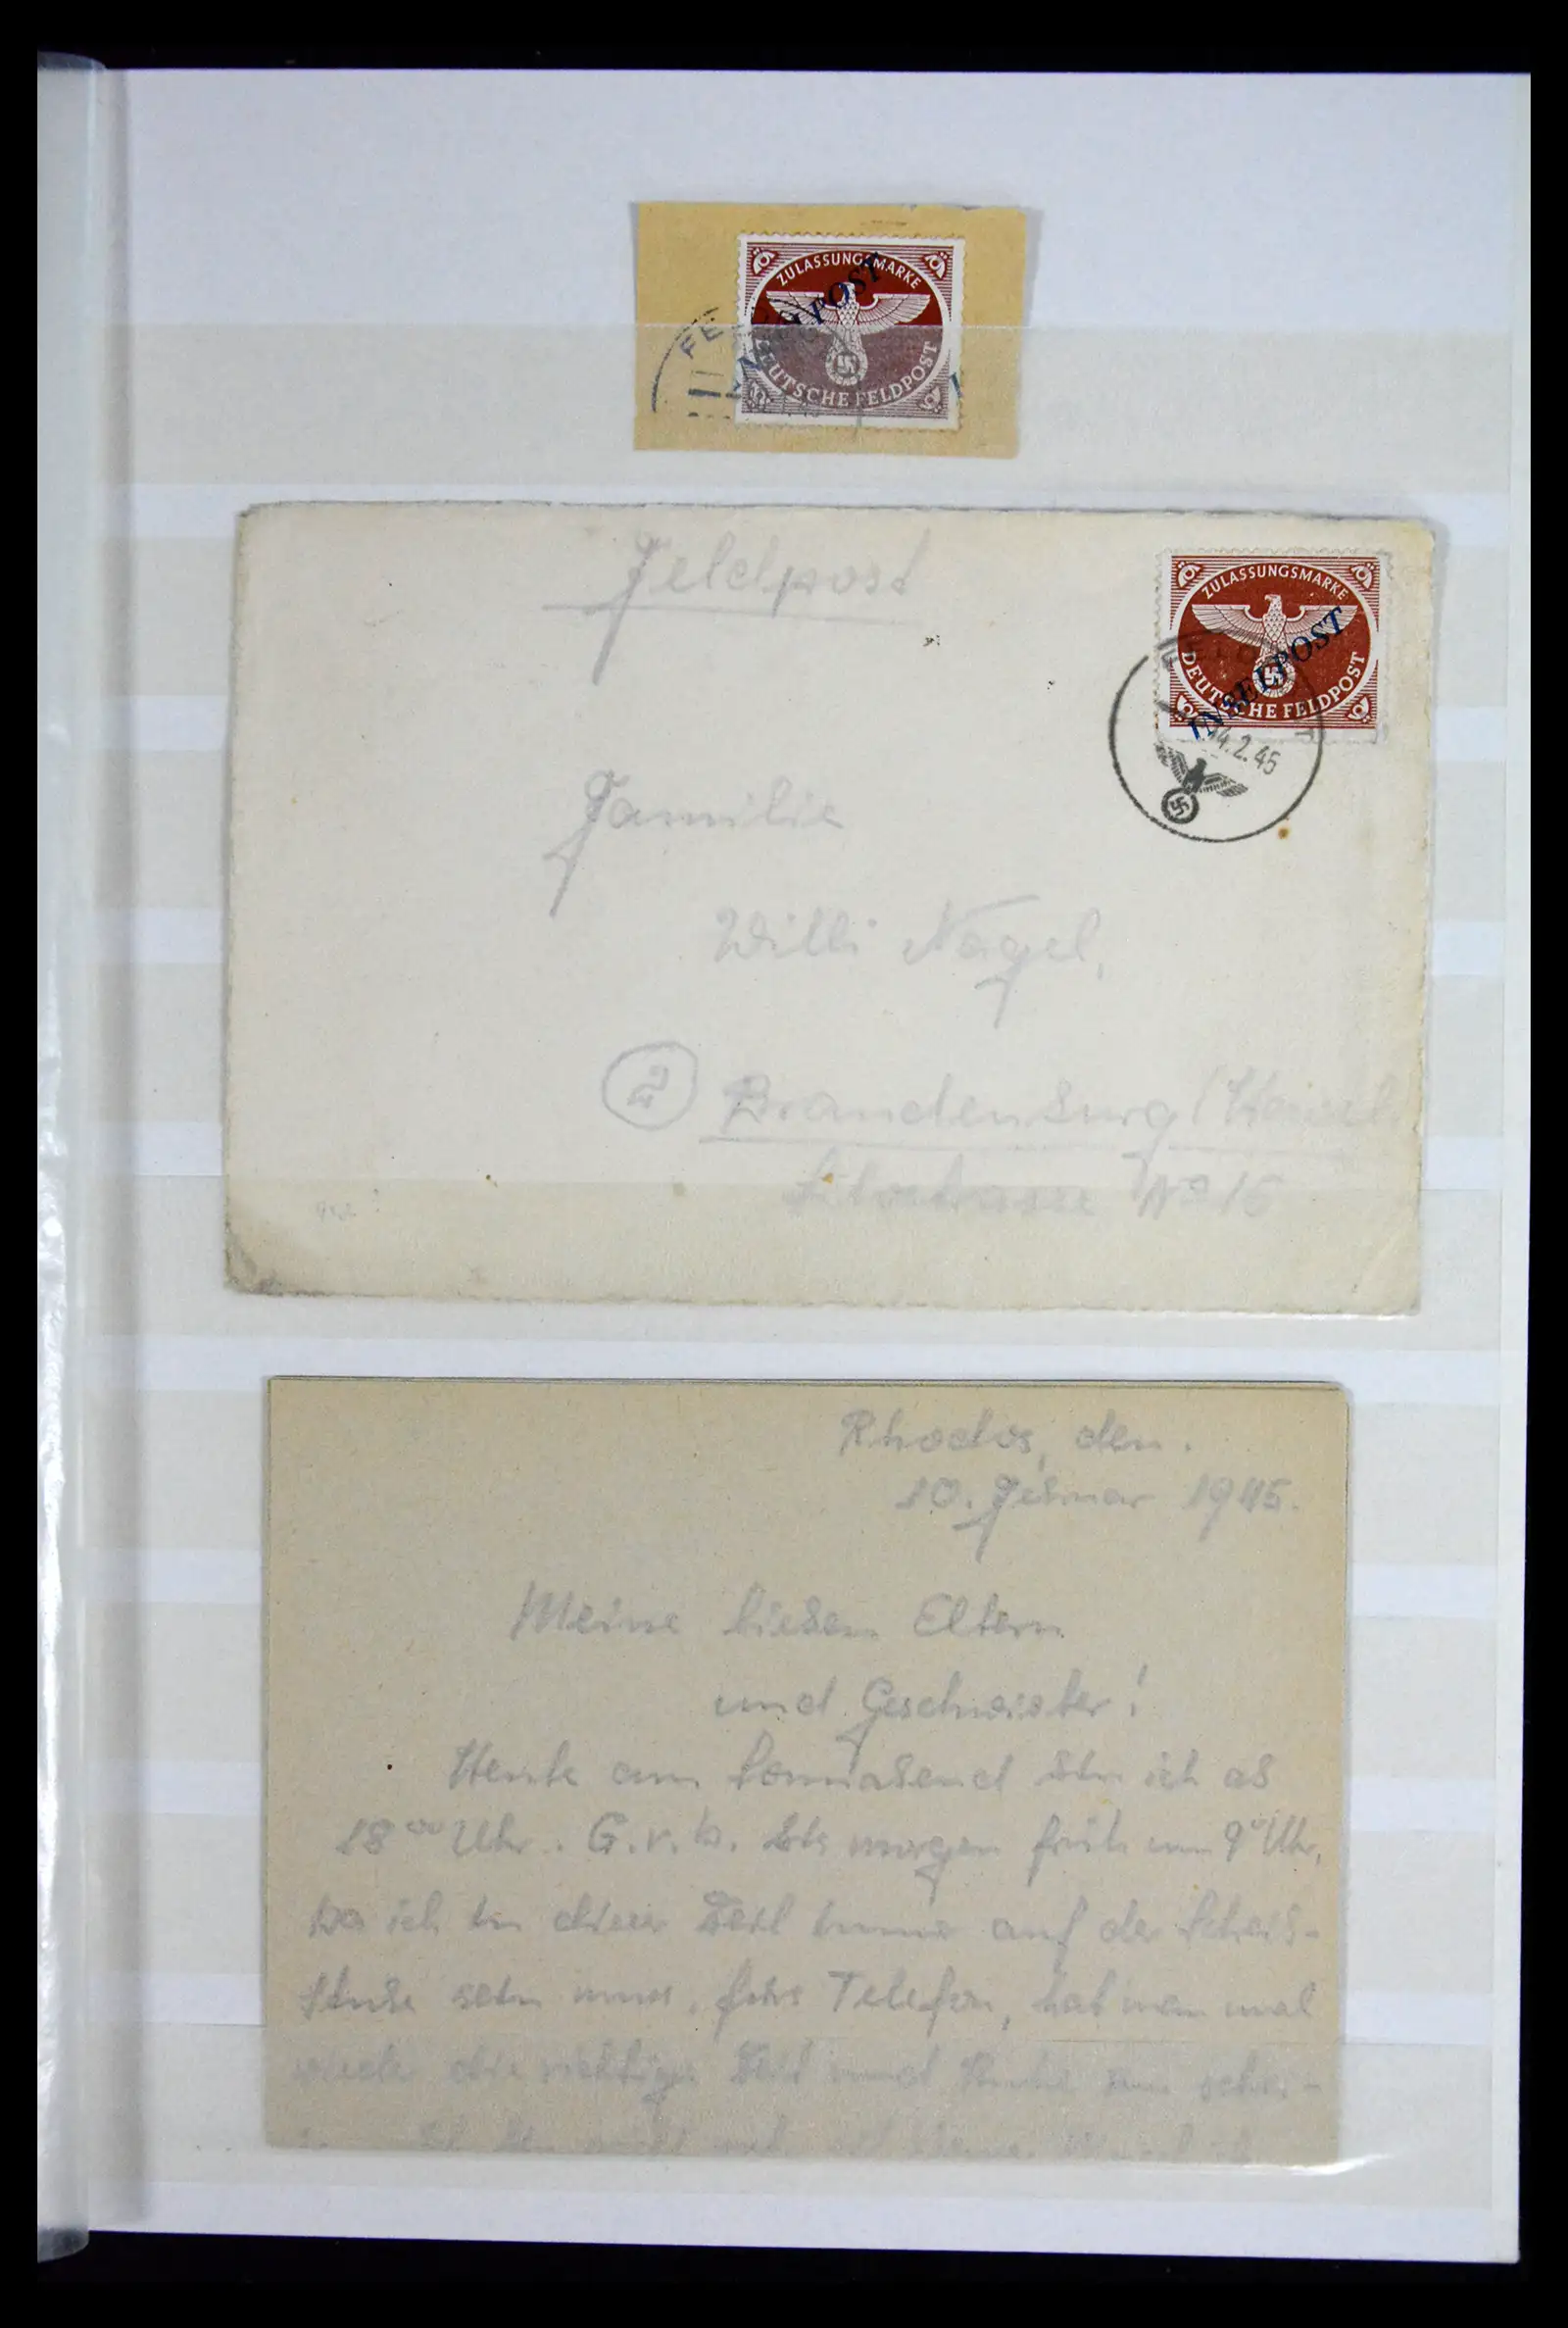 ZULASSUNGSMARKE
INSELPOST
DEUTSCHE FELDPOST
FE
Feldpost
ZULASSUNGSMARKE
INSELPOST
DEUTSCHE FELDPOST
14.2.45
Familie
Willi Nagel,
2 Brandenburg (Havel
No 16
Rhodos, den
10. Februar 1945.
Meine lieben Eltern
und Geschwister!
Heute am Sonnabend bin ich ab
18 00 Uhr. G.v.D. bis morgen früh um 9 00 Uhr,
Da ich in dieser Zeit immer auf der Schreib-
stube sein muss, fürs Telefon, hat man mal
wieder die richtige Zeit und Ruhe zum schrei-